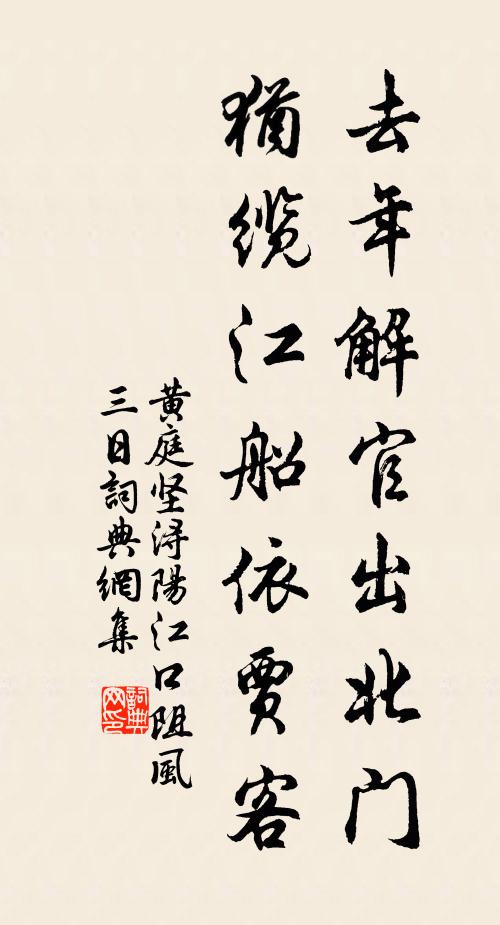 去年解官出北门
犹缆江船依贾客
黄庭坚浔陽江口阻風
三日詞典網集
詞典网印